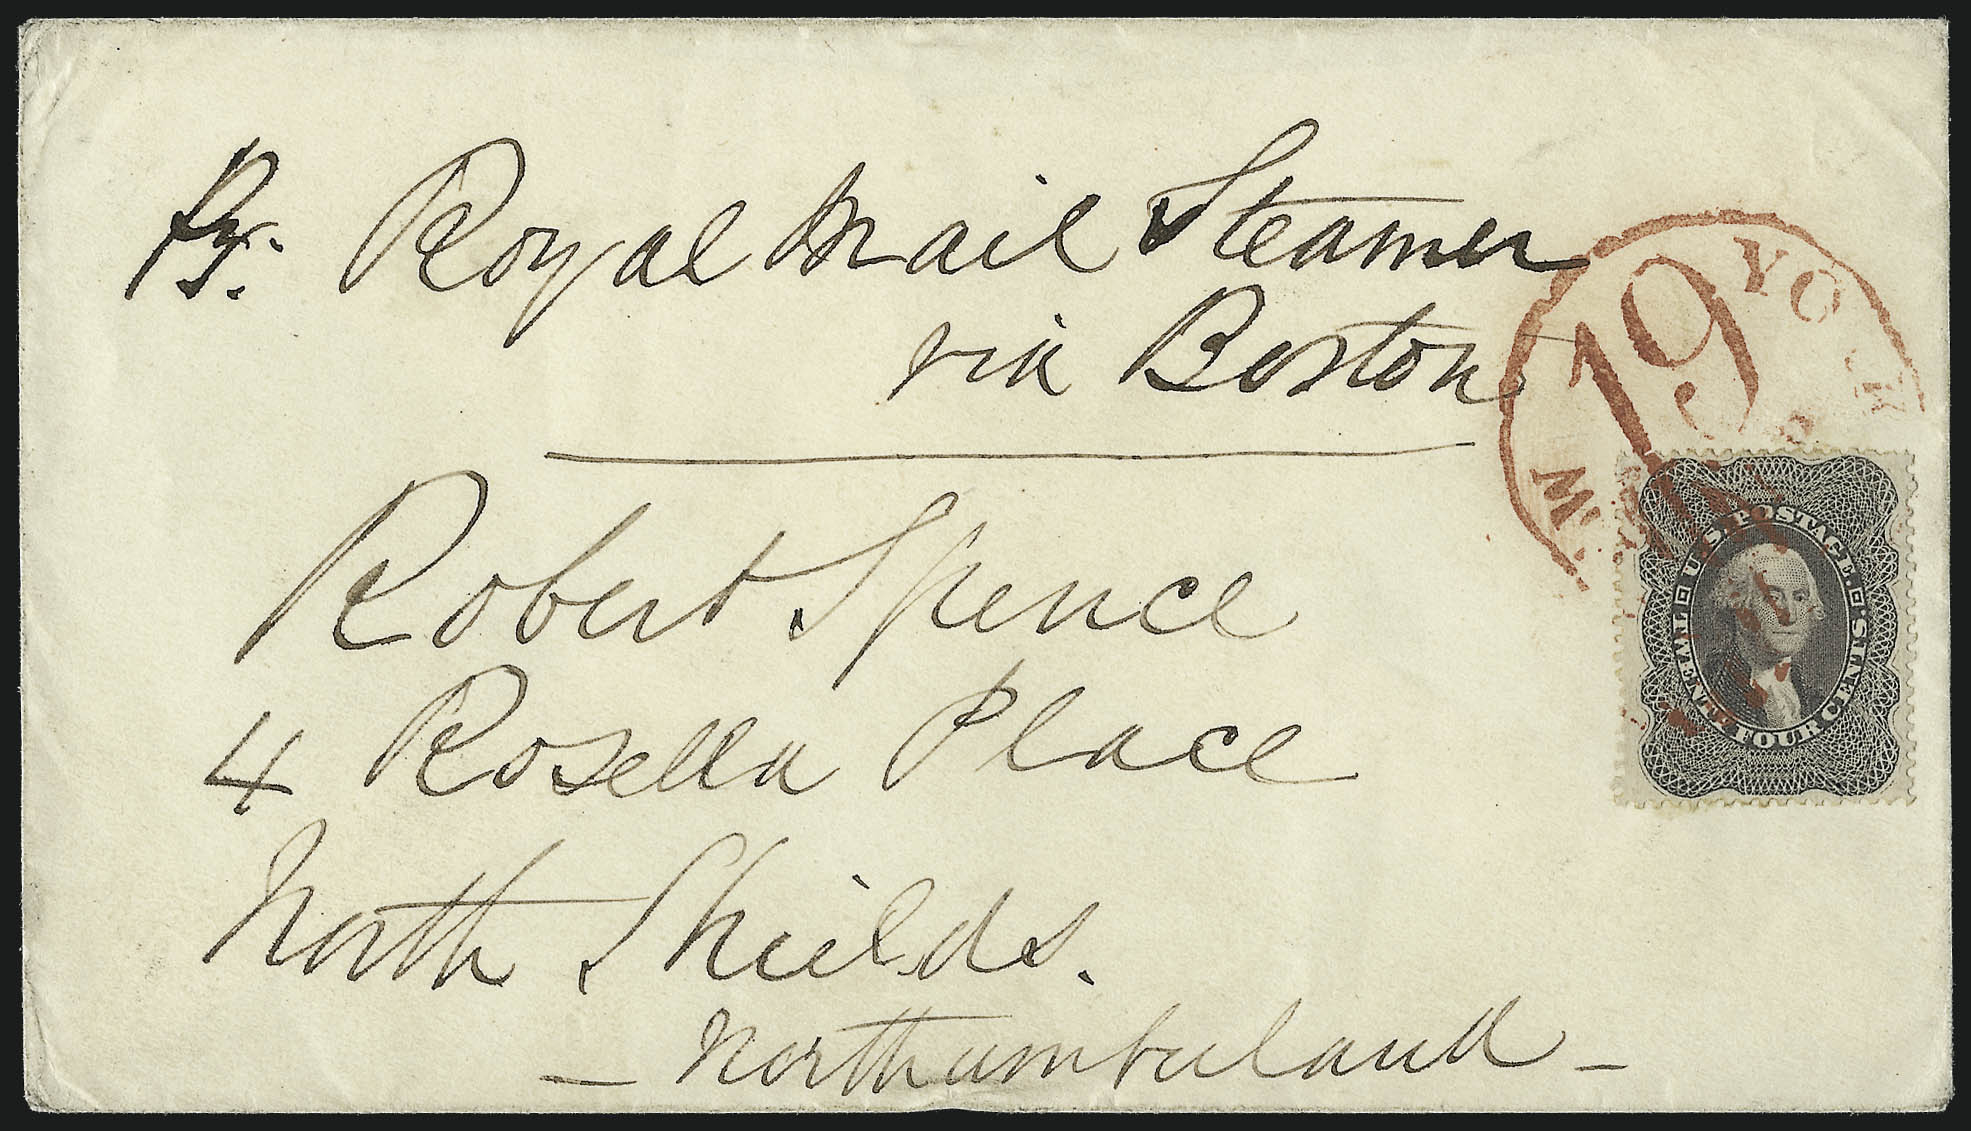 Pr. Royal Mail Steamer
via Boston
Robert Spence
4 Rosella Place
North Shields.
— Northumberland —
W YORK
19
U.S. POSTAGE.
TWENTY FOUR CENTS.